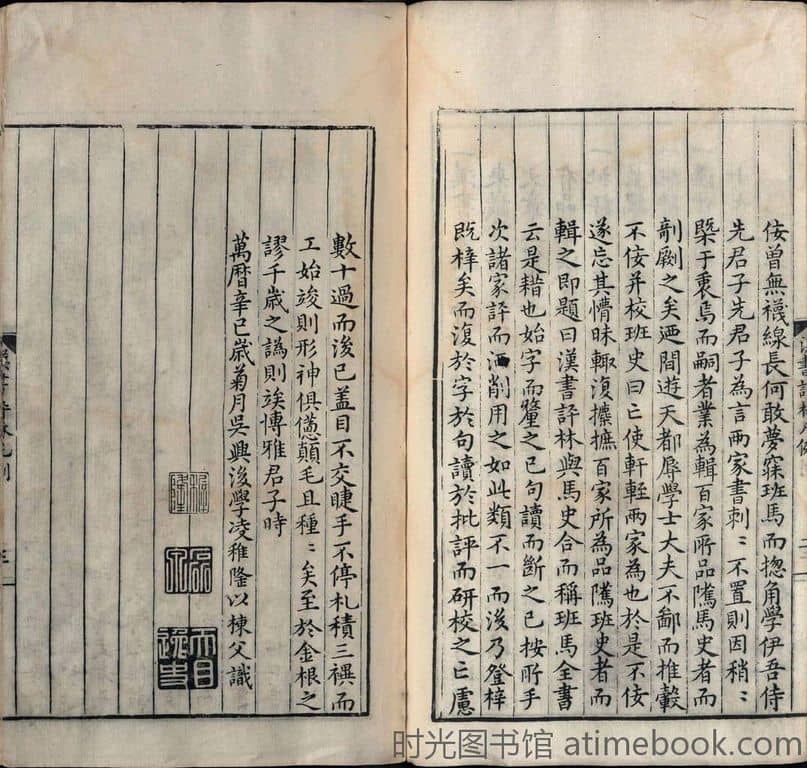 佞曾無襪線長何敢夢寐班馬而揔角學伊吾侍
先君子先君子為言兩家書刺〻不置則因稍〻
槩于衷焉而嗣者業為輯百家所品隲馬史者而
剞劂之矣迺間遊天都辱學士大夫不鄙而推轂
不佞并校班史曰亡使軒輊兩家為也於是不佞
遂忘其懵昧輙復攈摭百家所為品隲班史者而
輯之即題曰漢書評林與馬史合而稱班馬全書
云是耤也始字而釐之已句讀而斷之已按所手
次諸家評而洒削用之如此類不一而後乃登梓
既梓矣而復於字於句讀於批評而研校之亡慮
數十過而後已盖目不交睫手不停札積三禩而
工始竣則形神俱憊顛毛且種〻矣至於金根之
謬千歲之譌則竢愽雅君子時
萬曆辛巳歲菊月吳興後學凌稚隆以棟父識
稚隆
時光图书馆 atimebook.com